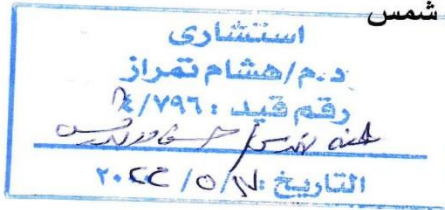 شمس
استشارى
د.م/هشام تمراز
رقم قيد : ٤/٧٩٦
التاريخ: ١٧/٥/٢٠٢٢